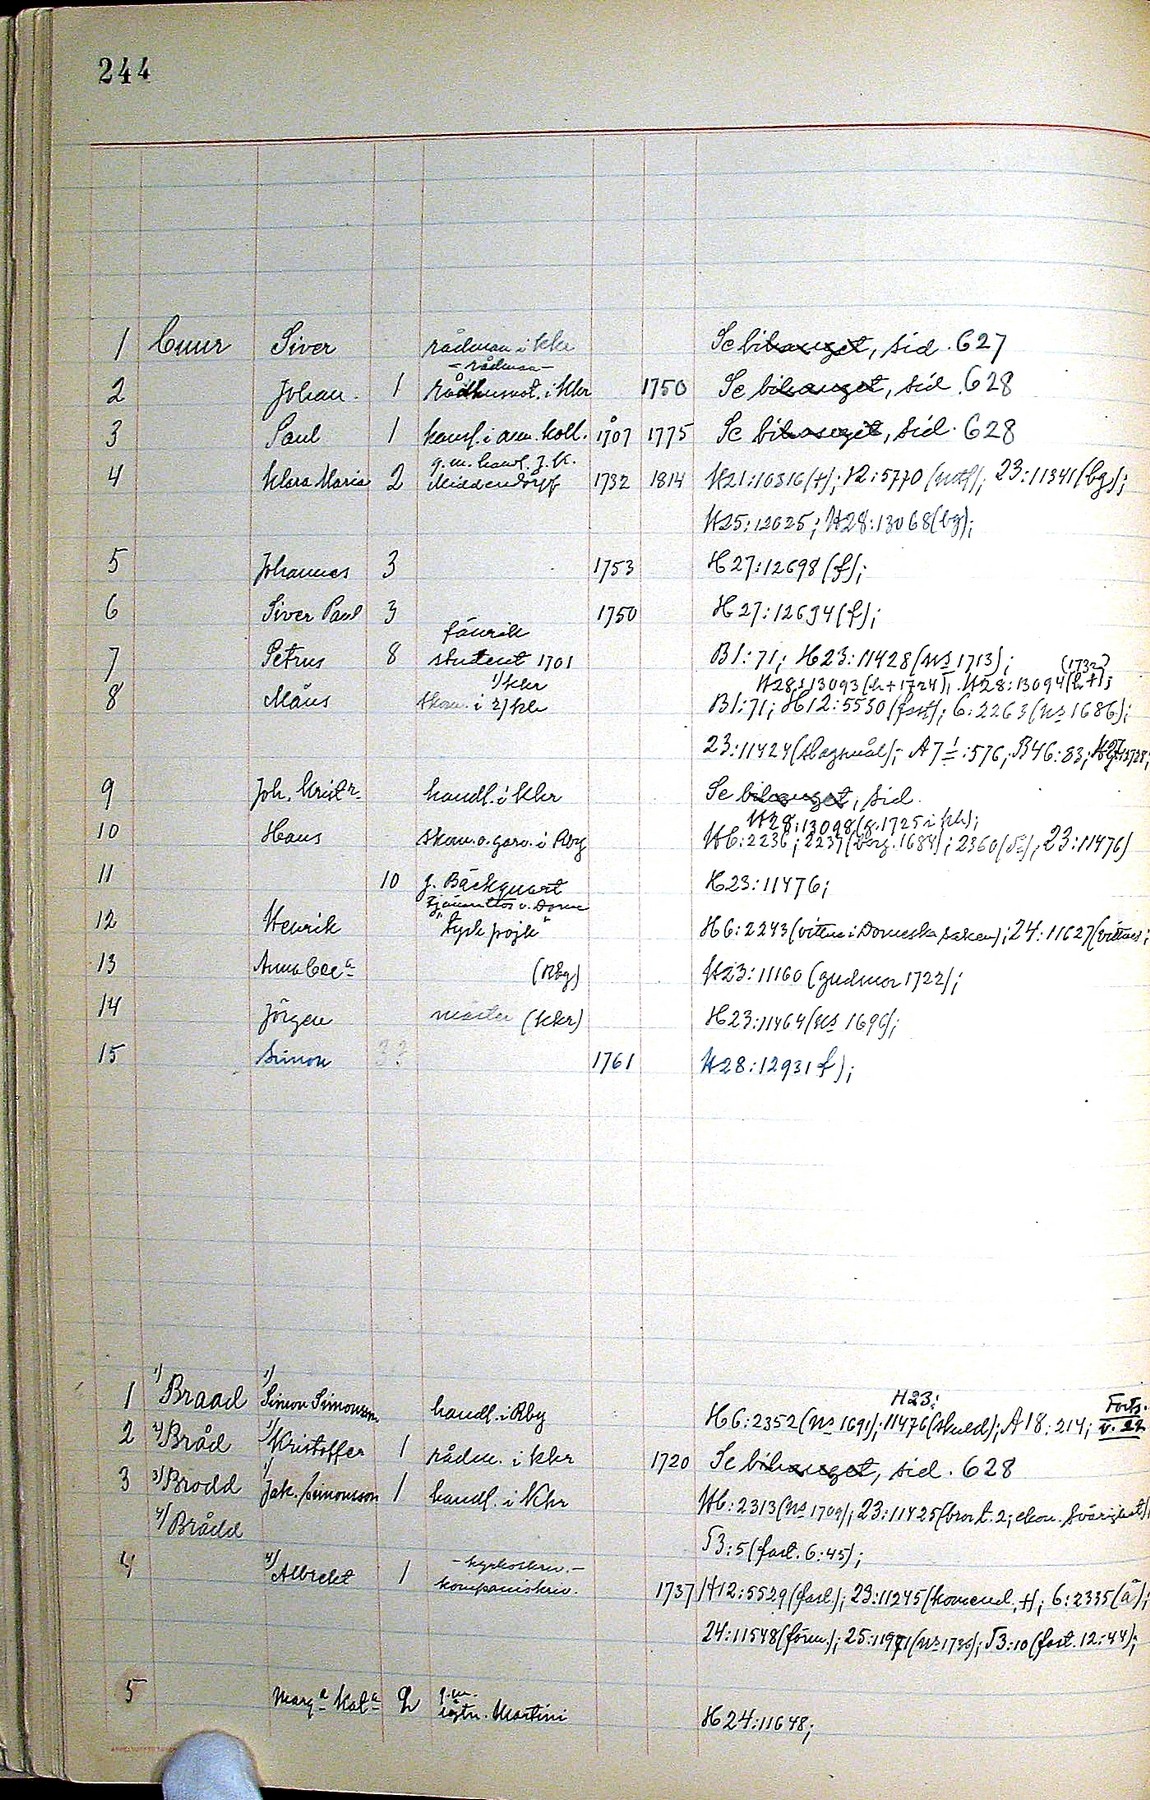 244
1 Cuur Siver rådman i kkr Se bihanget, sid. 627
– rådman –
2 Johan. 1 i kkr 1750 Se bihanget, sid. 628
3 Paul 1 i am. koll. 1707 1775 Se bihanget, sid. 628
g. m. handl. J. K.
4 Klara Maria 2 Middendorpf 1732 1814 H21:10516(+); 12:5770 23:11341(bg);
H25:12625; H28:13068(bg);
5 Johannes 3 1753 H27:12698(f);
6 Siver Paul 3 1750 H27:12694(f);
fänrik
7 Petrus 8 student 1701 B1:71; H23:11428(ns 1713);
1/ kkr H28:13093(h+1724); H28:13094(h+); (1732)
8 Måns skom. i 2/ kh B1:71; H12:5530(fast); 6:2263(ns 1686);
23:11424 A7:576; B46:83;
9 Joh. Krist r. handl. i kkr Se bihanget, sid.
H28:13098(g. 1725 i kh);
10 Hans skom. o. garv. i Rby H6:2236; 2237 2360 23:11476)
11 10 g. Bäckqvart H23:11476;
12 Henrik "tysk pojk" H6:2243(vittne i Domeska saken); 24:11627(vittne);
13 Anna Cec a (Rby) H23:11160 (gudmor 1722);
14 Jörgen mäster (kkr) H23:11464(ns 1696);
15 Simon 3? 1761 H28:12931 f);
H23: Forts.
1 1/ Braad 1/ Simon Simonsson handl. i Rby H6:2352(ns 1691); 11476(skuld); A18:214;
2 2/ Bråd 1/ Kristoffer 1 rådm. i kkr 1720 Se bihanget, sid. 628
3 3/ Brodd 1/ Jak. Simonsson 1 handl. i Khr H6:2313(ns 1709); 23:11425(bror t. 2; ekon. svårighet)
4/ Brådd
53:5(fast. 6:45);
4 4/ Albrekt 1 – kyrkoskriv. – kompaniskriv. 1737 H12:5529(fast); 23:11245 6:2335
24:11548(förm.); 25:11971(ns 1736); 53:10(fast. 12:44);
g. m.
5 Marg a Kat a 2 Martini H24:11648;